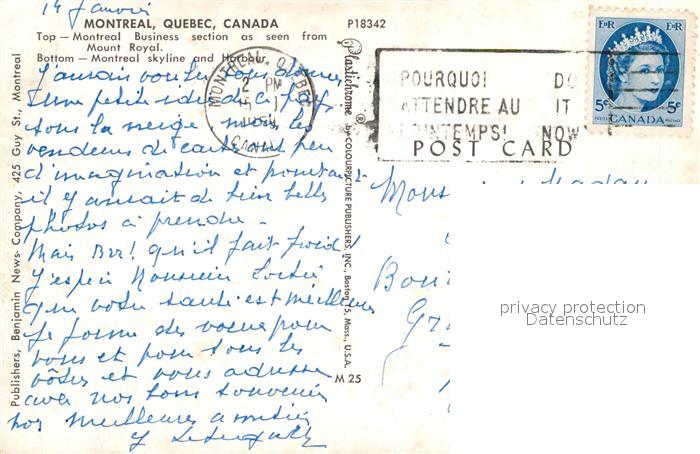 14 Janvier
MONTREAL, QUEBEC, CANADA
Top — Montreal Business section as seen from
Mount Royal.
Bottom — Montreal skyline and Harbour.
P18342
J'aurais voulu vous donner
une petite idée de ce pays
sous la neige mais les
vendeurs de cartes ont peu
d'imagination et pourtant
il y aurait de bien belles
photos à prendre.
Mais Brr! qu'il fait froid!
J'espère Monsieur
que votre santé est meilleure
Je forme des voeux pour
vous et pour tous les
vôtres et vous adresse
avec nos bons souvenirs
nos meilleures amitiés
Publishers, Benjamin News Company, 425 Guy St., Montreal
Plastichrome ® by COLOURPICTURE PUBLISHERS, INC., Boston 15, Mass., U.S.A.
M 25
MONTREAL, QUEBEC
2 PM
CANADA
POURQUOI DO
ATTENDRE AU IT
PRINTEMPS! NOW
EIIR EIIR
5c 5c
POSTES CANADA POSTAGE
POST CARD
privacy protection
Datenschutz